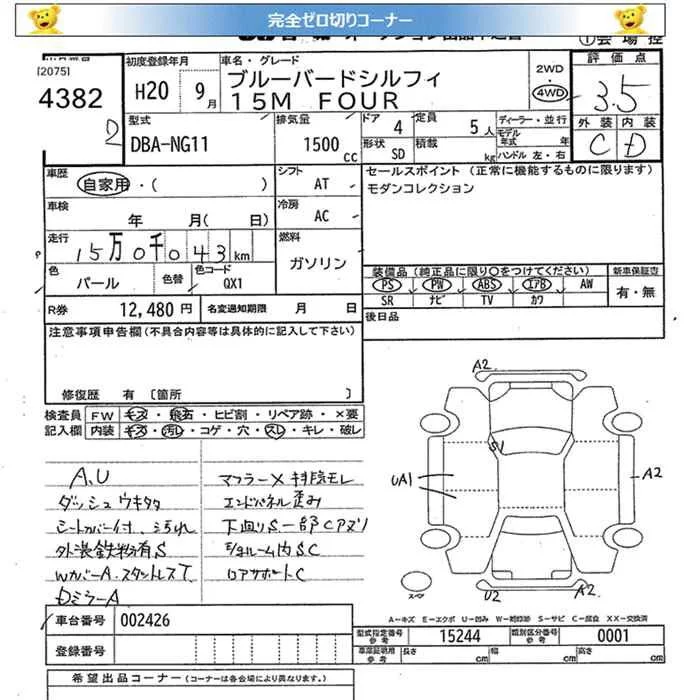 完全ゼロ切りコーナー
[2075]
4382
2
初度登録年月
H20 9月
車名・グレード
ブルーバードシルフィ
15M FOUR
2WD
4WD
評価点
3.5
型式
DBA-NG11
排気量
1500 cc
ドア
4
定員
5人
形状
SD
積載
kg
ディーラー・並行
モデル年式 年
ハンドル 左・右
外装 内装
C D
車歴
自家用・( )
シフト
AT
セールスポイント(正常に機能するものに限ります)
モダンコレクション
車検
年 月( 日)
冷房
AC
走行
15万0千043km
燃料
ガソリン
色
パール
色替
色コード
QX1
装備品(純正品に限り○をつけてください)
新車保証書
PS PW ABS エアB AW
SR ナビ TV カワ
有・無
R券
12,480円
名変通知期限 月 日
後日品
注意事項申告欄(不具合内容等は具体的に記入して下さい)
修復歴 有 〔箇所 〕
検査員記入欄
FW キズ・飛石・ヒビ割・リペア跡・×要
内装 キズ・汚レ・コゲ・穴・スレ・キレ・破レ
A2
S1
UA1
A2
U2
A2
A.U
ダッシュウキタタ
シートカバー付、汚れ
外装鉄粉有S
Wカバー A.ステントレスT
Dミラー A
マフラー×排気モレ
エンドパネル歪み
下廻りS一部Cアリ
ショルーム内S.C
ロアサポートC
A=キズ E=エクボ U=凹み W=補修跡 S=サビ C=腐食 XX=交換済
車台番号
002426
登録番号
型式指定番号 参考
15244
類別区分番号 参考
0001
車庫証明用 参考
長さ cm
幅 cm
高さ cm
希望出品コーナー(コーナーは各会場により異なります。)